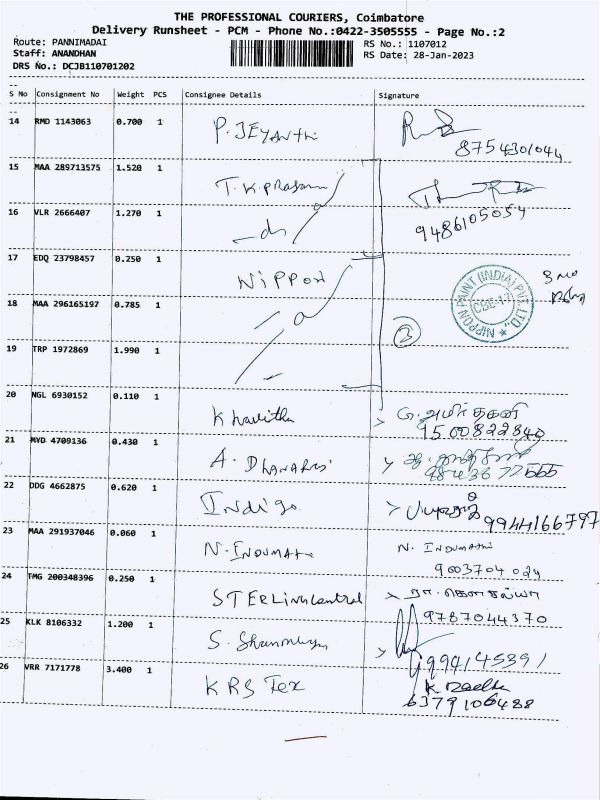 THE PROFESSIONAL COURIERS, Coimbatore
Delivery Runsheet - PCM - Phone No.:0422-3505555 - Page No.:2
Route: PANNIMADAI
Staff: ANANDHAN
DRS No.: DCJB110701202
RS No.: 1107012
RS Date: 28-Jan-2023
S No Consignment No Weight PCS Consignee Details Signature
14 RMD 1143063 0.700 1 P. JEYANTHI
8754301044
15 MAA 289713575 1.520 1 T.K.Prasanna
16 VLR 2666407 1.270 1 -do
9486105054
17 EDQ 23798457 0.250 1 NIPPON
NIPPON PAINT (INDIA) PVT. LTD.,
CBE-17
3 no
18 MAA 296165197 0.785 1
3
19 TRP 1972869 1.990 1
20 NGL 6930152 0.110 1 Khavitha
1500822840
21 MYD 4709136 0.430 1 A.
22 DDG 4662875 0.620 1 Indigo
9944166797
23 MAA 291937046 0.060 1 N. INDUMATHI N. INDUMATHI
9003704024
24 TMG 200348396 0.250 1 STERLING Central
9787044370
25 KLK 8106332 1.200 1 S. Shanmugam
9994145391
26 VRR 7171778 3.400 1 KRS Tex
6379106488